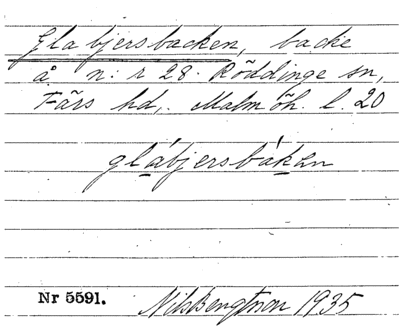 Glabjersbacken, backe
å n: r 28. Röddinge sn,
Färs hd,. Malmöh. l. 20
glábjersbákan
Nr 5591.
Nils Bengtsson 1935